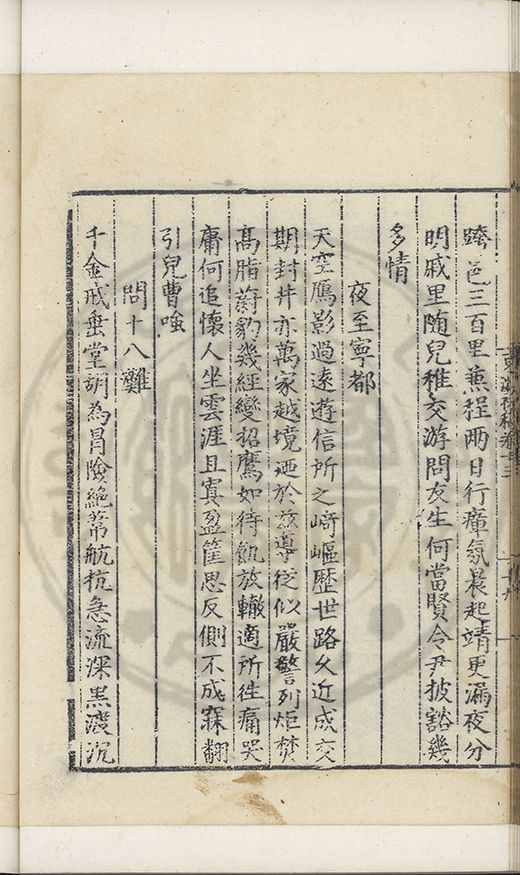 跨邑三百里兼程兩日行瘴氛晨起靖更漏夜分
明戚里随兒稚交游問友生何當賢令尹披豁幾
多情
夜至寧都
天空鴈影過遠遊信所之﨑嶇歷世路久近成交
期封井亦萬家越境迺於兹導從似嚴警列炬焚
髙脂蔚豹幾經變招鷹如待飢放轍適所往痛哭
庸何追懷人坐雲涯且寘盈筐思反側不成寐翻
引兒曹嗤
問十八灘
千金戒垂堂胡為冒險絶葦航抗急流深黒濴沉